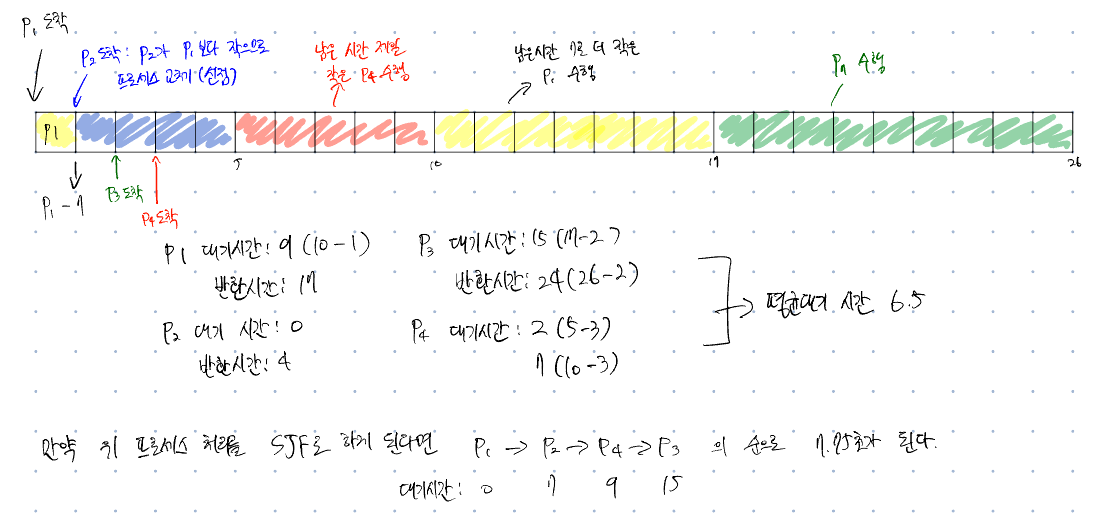 P1 도착
P2 도착 : P2가 P1 보다 작으므로
프로세스 교체 (선점)
남은 시간 제일
작은 P4 수행
남은시간 7로 더 작은
P1 수행
P3 수행
P1
5
10
17
26
P1 - 7
P3 도착
P4 도착
P1 대기시간 : 9 (10-1)
반환시간 : 17
P2 대기 시간 : 0
반환시간 : 4
P3 대기시간 : 15 (17-2)
반환시간 : 24 (26-2)
P4 대기시간 : 2 (5-3)
7 (10-3)
평균대기 시간 6.5
만약 위 프로세스 처리를 SJF로 하게 된다면 P1 → P2 → P4 → P3 의 순으로 7.75초가 된다.
대기시간 : 0 7 9 15